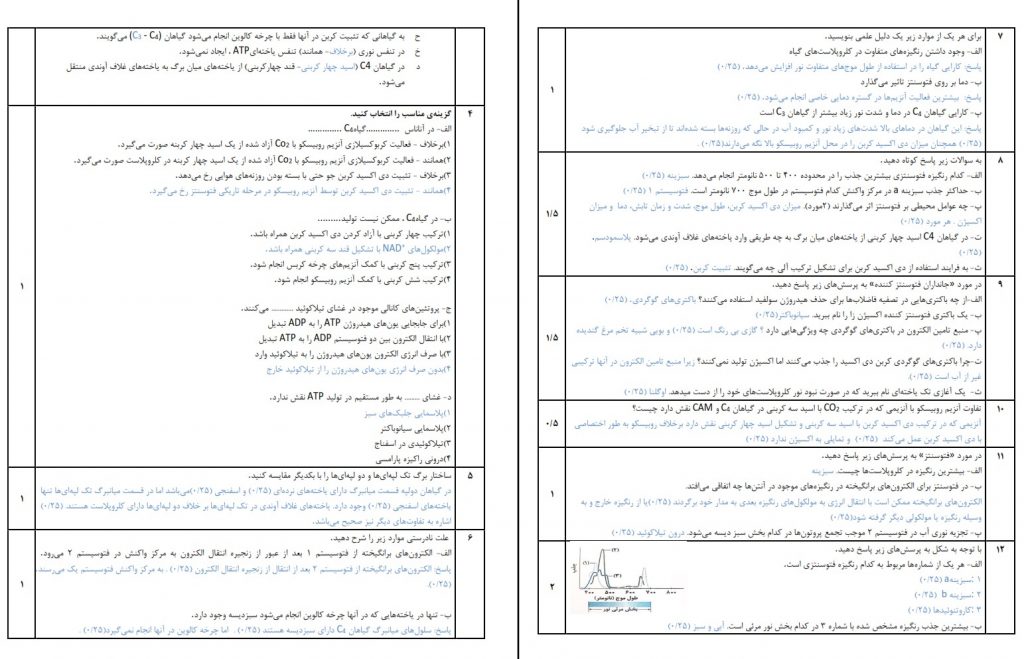 ح به گیاهانی که تثبیت کربن در آنها فقط با چرخه کالوین انجام می‌شود گیاهان (C3 - C4) می‌گویند.
خ در تنفس نوری (برخلاف- همانند) تنفس یاخته‌ای ATP ، ایجاد نمی‌شود.
د در گیاهان C4 (اسید چهار کربنی- قند چهارکربنی) از یاخته‌های میان برگ به یاخته‌های غلاف آوندی منتقل
می‌شود.
۴ گزینه‌ی مناسب را انتخاب کنید.
الف- در آناناس ..............گیاهC4 ..............
۱)برخلاف - فعالیت کربوکسیلازی آنزیم روبیسکو با Co2 آزاد شده از یک اسید چهار کربنه صورت می‌گیرد.
۲)همانند - فعالیت کربوکسیلازی آنزیم روبیسکو با Co2 آزاد شده از یک اسید چهار کربنه در کلروپلاست صورت می‌گیرد.
۳)برخلاف - تثبیت دی اکسید کربن جو حتی با بسته بودن روزنه‌های هوایی رخ می‌دهد.
۴)همانند - تثبیت دی اکسید کربن توسط آنزیم روبیسکو در مرحله تاریکی فتوسنتز رخ می‌گیرد.
ب- در گیاهC4 ، ممکن نیست تولید..........
۱)ترکیب چهار کربنی با آزاد کردن دی اکسید کربن همراه باشد.
۲)مولکول‌های NAD+ با تشکیل قند سه کربنی همراه باشد.
۳)ترکیب پنج کربنی با کمک آنزیم‌های چرخه کربس انجام شود.
۴)ترکیب شش کربنی با کمک آنزیم روبیسکو انجام شود.
۱
ج- پروتئین‌های کانالی موجود در غشای تیلاکوئید .......... می‌کنند.
۱)برای جابجایی یون‌های هیدروژن ATP را به ADP تبدیل
۲)با انتقال الکترون بین دو فتوسیستم ADP را به ATP تبدیل
۳)با صرف انرژی الکترون یون‌های هیدروژن را به تیلاکوئید وارد
۴)بدون صرف انرژی یون‌های هیدروژن را از تیلاکوئید خارج
د- غشای ....... به طور مستقیم در تولید ATP نقش ندارد.
۱)پلاسمایی جلبک‌های سبز
۲)پلاسمایی سیانوباکتر
۳)تیلاکوئیدی در اسفناج
۴)درونی راکیزه پارامسی
۵ ساختار برگ تک لپه‌ای‌ها و دو لپه‌ای‌ها را با یکدیگر مقایسه کنید.
در گیاهان دولپه قسمت میانبرگ دارای یاخته‌های نرده‌ای (۰/۲۵) و اسفنجی (۰/۲۵)می‌باشد اما در قسمت میانبرگ تک لپه‌ای‌ها تنها
یاخته‌های اسفنجی (۰/۲۵) وجود دارد. یاخته‌های غلاف آوندی در تک لپه‌ای‌ها بر خلاف دو لپه‌ای‌ها دارای کلروپلاست هستند. (۰/۲۵) ۱
اشاره به تفاوت‌های دیگر نیز صحیح می‌باشد.
۶ علت نادرستی موارد زیر را شرح دهید.
الف- الکترون‌های برانگیخته از فتوسیستم ۱ بعد از عبور از زنجیره انتقال الکترون به مرکز واکنش در فتوسیستم ۲ می‌رود.
پاسخ: الکترون‌های برانگیخته از فتوسیستم ۲ بعد از انتقال از زنجیره انتقال الکترون (۰/۲۵) . به مرکز واکنش فتوسیستم یک می‌رسند.
(۰/۲۵). ۱
ب- تنها در یاخته‌هایی که در آنها چرخه کالوین انجام می‌شود سبزدیسه وجود دارد.
پاسخ: سلول‌های میانبرگ گیاهان C4 دارای سبزدیسه هستند (۰/۲۵) . اما چرخه کالوین در آنها انجام نمی‌گیرد(۰/۲۵) .
۷ برای هر یک از موارد زیر یک دلیل علمی بنویسید.
الف- وجود داشتن رنگیزه‌های متفاوت در کلروپلاست‌های گیاه
پاسخ: کارایی گیاه را در استفاده از طول موج‌های متفاوت نور افزایش می‌دهد. (۰/۲۵)
ب- دما بر روی فتوسنتز تاثیر می‌گذارد
پاسخ: بیشترین فعالیت آنزیم‌ها در گستره دمایی خاصی انجام می‌شود. (۰/۲۵) ۱
پ- کارایی گیاهان C4 در دما و شدت نور زیاد بیشتر از گیاهان C3 است
پاسخ: این گیاهان در دماهای بالا شدت‌های زیاد نور و کمبود آب در حالی که روزنه‌ها بسته شده‌اند تا از تبخیر آب جلوگیری شود
(۰/۲۵) همچنان میزان دی اکسید کربن را در محل آنزیم روبیسکو بالا نگه می‌دارند(۰/۲۵) .
۸ به سوالات زیر پاسخ کوتاه دهید.
الف- کدام رنگیزه فتوسنتزی بیشترین جذب را در محدوده ۴۰۰ تا ۵۰۰ نانومتر انجام می‌دهد. سبزینه (۰/۲۵)
ب- حداکثر جذب سبزینه a در مرکز واکنش کدام فتوسیستم در طول موج ۷۰۰ نانومتر است. فتوسیستم ۱ (۰/۲۵)
پ- چه عوامل محیطی بر فتوسنتز اثر می‌گذارند (۲مورد). میزان دی اکسید کربن، طول موج، شدت و زمان تابش، دما و میزان ۱/۵
اکسیژن . هر مورد (۰/۲۵)
ت- در گیاهان C4 اسید چهار کربنی از یاخته‌های میان برگ به چه طریقی وارد یاخته‌های غلاف آوندی می‌شود. پلاسمودسم.
(۰/۲۵)
ث- به فرایند استفاده از دی اکسید کربن برای تشکیل ترکیب آلی چه می‌گویند. تثبیت کربن. (۰/۲۵)
۹ در مورد «جانداران فتوسنتز کننده» به پرسش‌های زیر پاسخ دهید.
الف-از چه باکتری‌هایی در تصفیه فاضلاب‌ها برای حذف هیدروژن سولفید استفاده می‌کنند؟ باکتری‌های گوگردی. (۰/۲۵)
ب- یک باکتری فتوسنتز کننده اکسیژن زا را نام ببرید. سیانوباکتر(۰/۲۵)
پ- منبع تامین الکترون در باکتری‌های گوگردی چه ویژگی‌هایی دارد ؟ گازی بی رنگ است (۰/۲۵) و بویی شبیه تخم مرغ گندیده ۱/۵
دارد. (۰/۲۵)
ت-چرا باکتری‌های گوگردی کربن دی اکسید را جذب می‌کنند اما اکسیژن تولید نمی‌کنند؟ زیرا منبع تامین الکترون در آنها ترکیبی
غیر از آب است (۰/۲۵).
ث- یک آغازی تک یاخته‌ای نام ببرید که در صورت نبود نور کلروپلاست‌های خود را از دست میدهد. اوگلنا (۰/۲۵)
۱۰ تفاوت آنزیم روبیسکو با آنزیمی که در ترکیب CO2 با اسید سه کربنی در گیاهان C4 و CAM نقش دارد چیست؟
آنزیمی که در ترکیب دی اکسید کربن با اسید سه کربنی و تشکیل اسید چهار کربنی نقش دارد برخلاف روبیسکو به طور اختصاصی ۰/۵
با دی اکسید کربن عمل می‌کند (۰/۲۵) و تمایلی به اکسیژن ندارد (۰/۲۵)
۱۱ در مورد «فتوسنتز» به پرسش‌های زیر پاسخ دهید.
الف- بیشترین رنگیزه در کلروپلاست‌ها چیست. سبزینه
ب- در فتوسنتز برای الکترون‌های برانگیخته در رنگیزه‌های موجود در آنتن‌ها چه اتفاقی می‌افتد.
الکترون‌های برانگیخته ممکن است با انتقال انرژی به مولکول‌های رنگیزه بعدی به مدار خود برگردند (۰/۲۵)یا از رنگیزه خارج و به ۱
وسیله رنگیزه یا مولکولی دیگر گرفته شود(۰/۲۵)
پ- تجزیه نوری آب در فتوسیستم ۲ موجب تجمع پروتون‌ها در کدام بخش سبز دیسه می‌شود. درون تیلاکوئید (۰/۲۵)
۱۲ با توجه به شکل به پرسش‌های زیر پاسخ دهید.
الف- هر یک از شماره‌ها مربوط به کدام رنگیزه فتوسنتزی است.
۱ :سبزینهa (۰/۲۵)
۲ :سبزینه b (۰/۲۵) ۲
۳ :کاروتنوئیدها (۰/۲۵)
ب- بیشترین جذب رنگیزه مشخص شده با شماره ۳ در کدام بخش نور مرئی است. آبی و سبز (۰/۲۵)
جذب
(۱) (۲) (۳)
۴۰۰ ۵۰۰ ۶۰۰ ۷۰۰ ۸۰۰
طول موج (نانومتر)
بخش مرئی نور